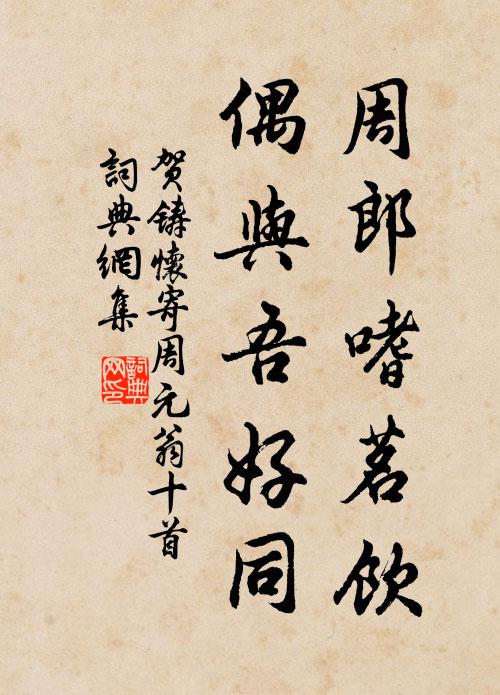 周郎嗜茗飲
偶與吾好同
賀鑄懷寄周元翁十首
詞典網集
詞典网印